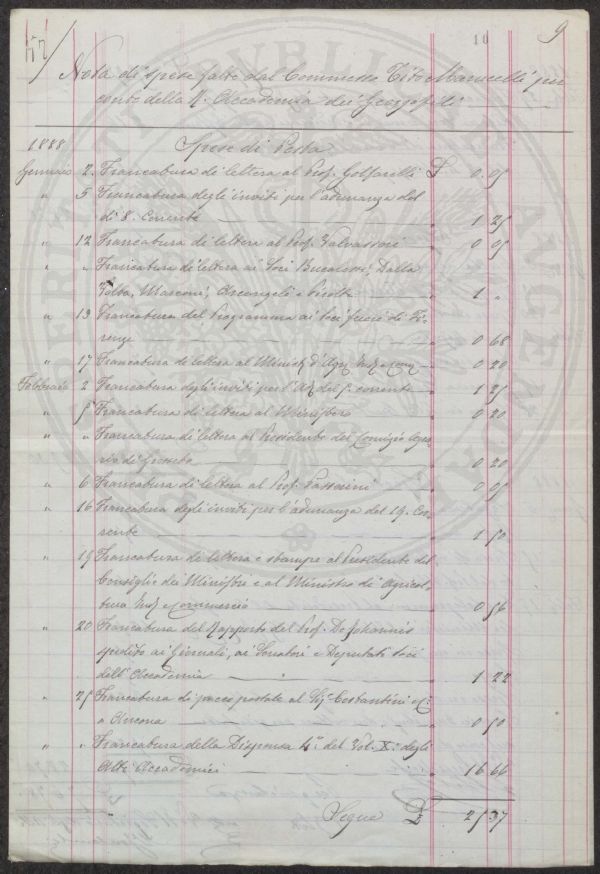 10 9
Nota di spese fatte dal Commesso Tito Marucelli per
conto della R. Accademia dei Georgofili
1888 Spese di Posta
Gennaio 2. Francatura di lettera al Prof. Golfarelli £ 0 05
" 5 Francatura degli inviti per l'adunanza del
dì 8. Corrente " 1 25
" 12 Francatura di lettera al Prof. Valvassori " 0 05
" " Francatura di lettera ai Soci Bucalossi, Dalla
Volta, Marconi, Arcangeli e " 1 "
" 13 Francatura del Programma ai Soci fuori di Fi-
renze " 0 68
" 17 Francatura di lettera al Minist. d'Agr. Ind. e Com. " 0 20
Febbraio 2 Francatura degli inviti per l'Ad. del 5. corrente " 1 25
" 5 Francatura di lettera al Ministero " 0 20
" " Francatura di lettera al Presidente del Comizio Agra-
rio di Grosseto " 0 20
" 6 Francatura di lettera al Prof. Passerini " 0 05
" 16 Francatura degli inviti per l'adunanza del 19. Cor-
rente " 1 50
" 19 Francatura di lettera e stampe al Presidente del
Consiglio dei Ministri e al Ministro di Agricol-
tura Ind. e Commercio " 0 56
" 20 Francatura del Rapporto del Prof. De Johannis
spedito ai Giornali, ai Senatori e Deputati soci
dell'Accademia " 1 22
" 25 Francatura di pacco postale al Sig. Costantini
a Ancona " 0 50
" " Francatura della Dispensa 4ª. del Vol. X.° degli
Atti Accademici " 16 66
Segue £ 25 37